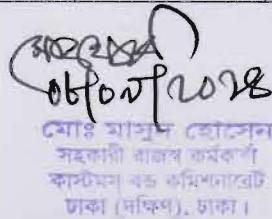 ০৮/০৭/২০২৪
মোঃ মাসুদ হোসেন
সহকারী রাজস্ব কর্মকর্তা
কাস্টমস বন্ড কমিশনারেট
ঢাকা (দক্ষিণ), ঢাকা।